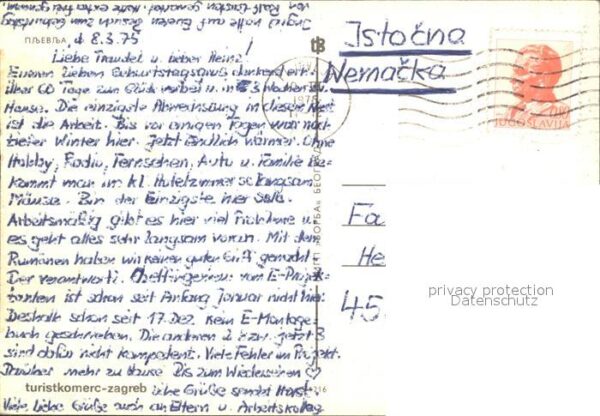 Ingrid hatte auf Euren Besuch zum Geburtstag
von Ralf
ПЉЕВЉА d. 8.3.75
Liebe Traudel u. lieber Heinz!
Eueren lieben Geburtstagsgruss dankend erh.
Über 60 Tage zum Glück vorbei u. in 3 Wochen zu
Hause. Die einzigste Abwechslung in dieser
ist die Arbeit. Bis vor einigen Tagen war noch
tiefer Winter hier. Jetzt endlich wärmer. Ohne
Hobby, Radio, Fernsehen, Auto u. Familie be-
kommt man im kl. Hotelzimmer so langsam
Mäuse. Bin der Einzigste hier
Arbeitsmäßig gibt es hier viel u.
es geht alles sehr langsam voran. Mit den
Rumänen haben wir keinen guten Griff gemacht.
Der verantwortl. Chefingenieur vom E-Projek-
tanten ist schon seit Anfang Januar nicht hier.
Deshalb schon seit 17. Dez. kein E-Montage-
buch geschrieben. Die anderen 2 bzw. jetzt 3
sind dafür nicht kompetent. Viele Fehler im Projekt.
Darüber mehr zu Hause. Bis zum Wiedersehen
turistkomerc-zagreb liebe Grüße sendet Horst.
Viele liebe Grüße auch an Eltern u. Arbeitskolleg
Istočna
Nemačka
JUGOSLAVIJA
„БОРБА“ БЕОГРАД
Fa
He
45
privacy protection
Datenschutz
216